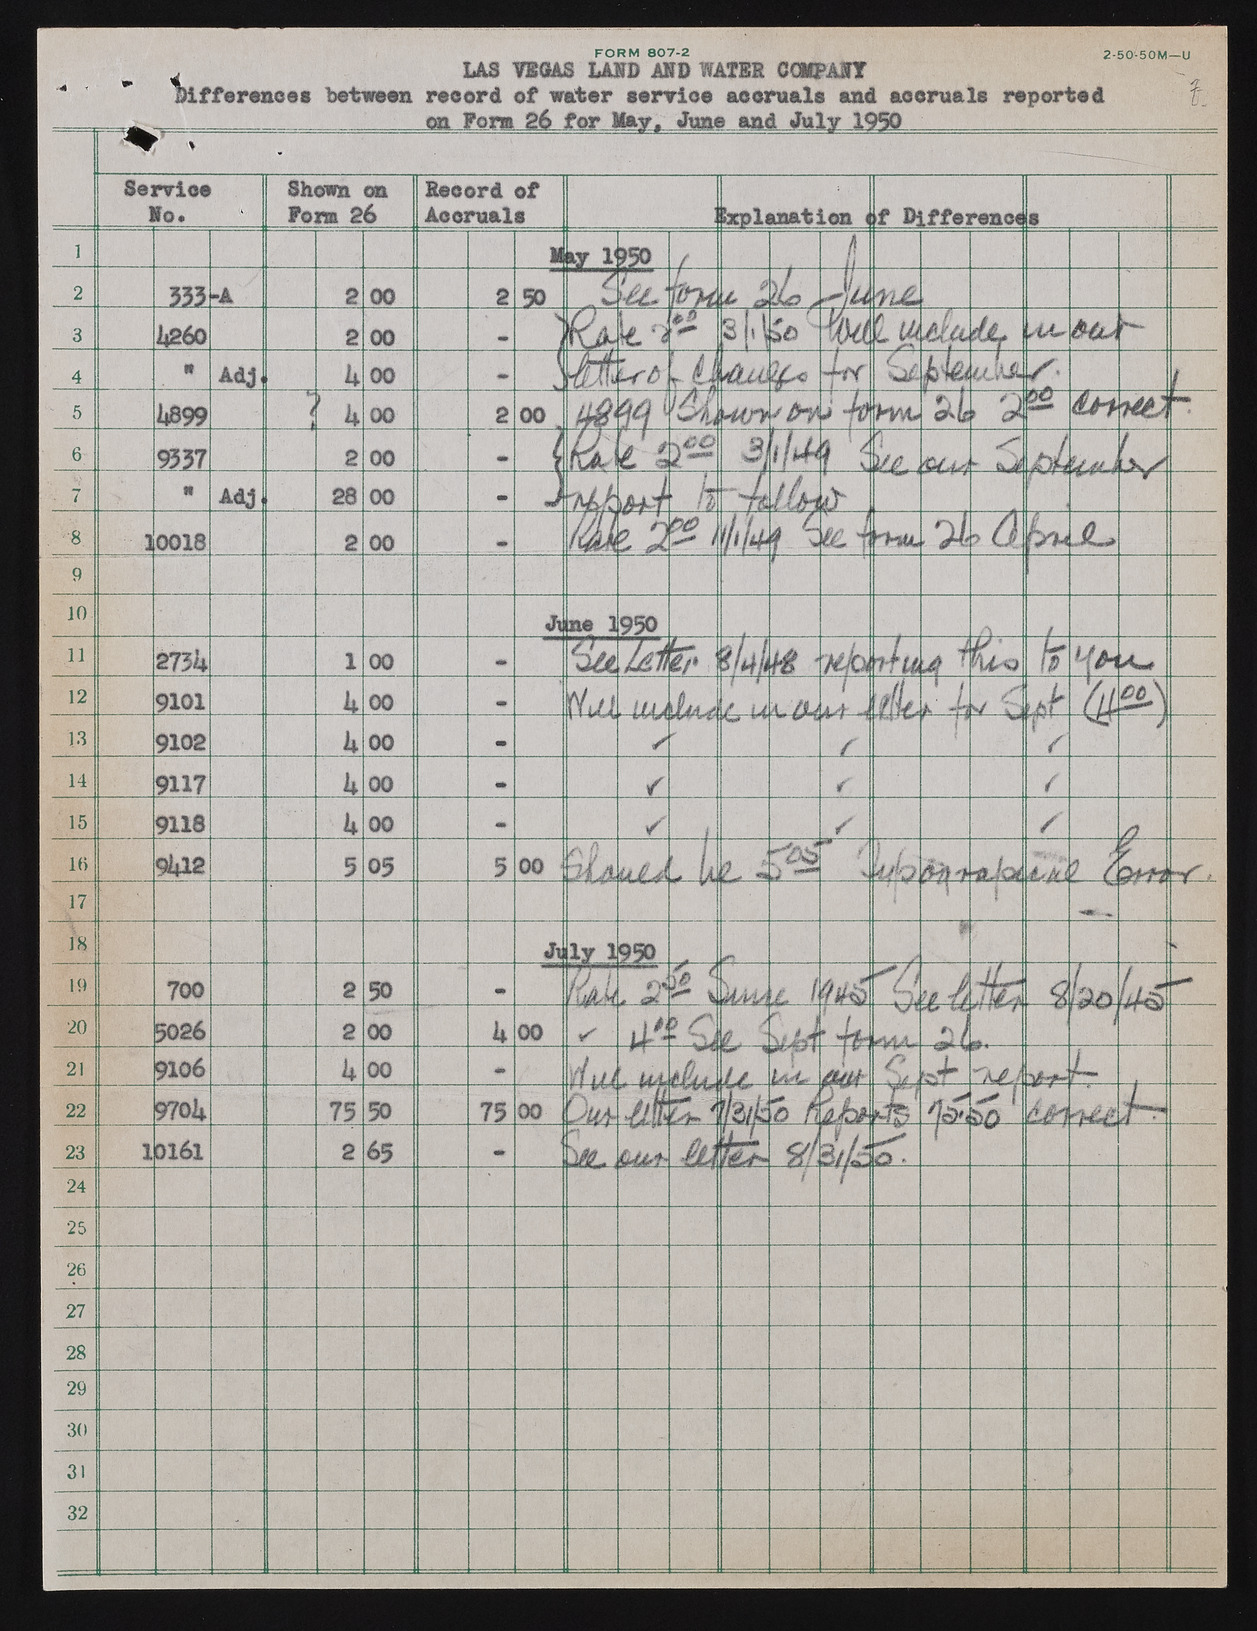 FORM 807-2
2-50-50M—U
LAS VEGAS LAND AND WATER COMPANY
Differences between record of water service accruals and accruals reported
on Form 26 for May, June and July 1950
Service No. Shown on Form 26 Record of Accruals Explanation of Differences
1 May 1950
2 333-A 2 00 2 50 See form 26 - June
3 4260 2 00 - Rate 2 00 3/1/50 Will include in our
4 " Adj. 4 00 - letter of changes for September.
5 4899 ? 4 00 2 00 4899 Shown on form 26 2 00 correct.
6 9337 2 00 - Rate 2 00 3/1/49 See our September
7 " Adj. 28 00 - report to follow
8 10018 2 00 - Rate 2 00 11/1/49 See form 26 April
9
10 June 1950
11 2734 1 00 - See Letter 8/4/48 reporting this to you
12 9101 4 00 - Will include in our letter for Sept (4 00)
13 9102 4 00 - ✓ ✓ ✓
14 9117 4 00 - ✓ ✓ ✓
15 9118 4 00 - ✓ ✓ ✓
16 9412 5 05 5 00 Should be 5 05 Error.
17
18 July 1950
19 700 2 50 - Rate 2 50 Since 1945 See letter 8/20/45
20 5026 2 00 4 00 ✓ 4 00 See Sept form 26.
21 9106 4 00 - Will include in our Sept report.
22 9704 75 50 75 00 Our letter 7/31/50 Reports 75.50 correct.
23 10161 2 65 - See our letter 8/31/50.
24
25
26
27
28
29
30
31
32